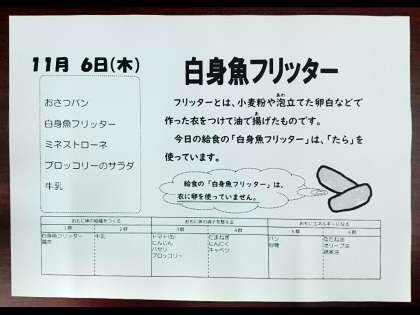 11月 6日(木)
白身魚フリッター
おさつパン
白身魚フリッター
ミネストローネ
ブロッコリーのサラダ
牛乳
フリッターとは、小麦粉や泡立てた卵白などで
作った衣をつけて油で揚げたものです。
今日の給食の「白身魚フリッター」は、「たら」を
使っています。
給食の「白身魚フリッター」は、
衣に卵を使っていません。
おもに体の組織をつくる
おもに体の調子を整える
おもにエネルギーになる
1群
2群
3群
4群
5群
6群
白身魚フリッター
牛乳
トマト缶
にんじん
パセリ
ブロッコリー
たまねぎ
にんにく
キャベツ
パン
砂糖
なたね油
オリーブ油